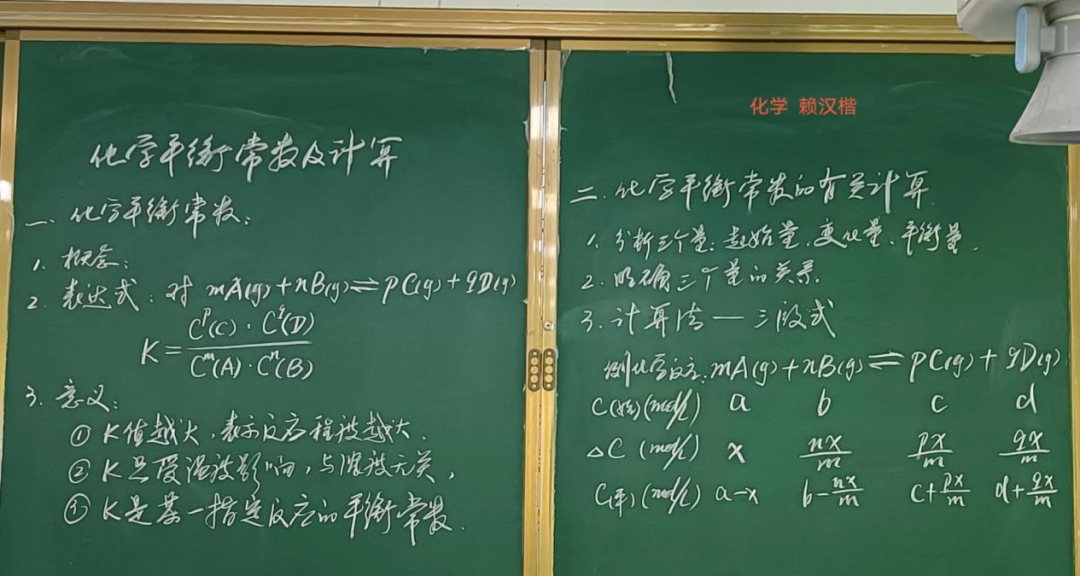 化学平衡常数及计算
一、化学平衡常数：
1. 概念：
2. 表达式：对 mA(g)+nB(g)⇌pC(g)+qD(g)
K=\frac{C^p(C)·C^q(D)}{C^m(A)·C^n(B)}
3. 意义：
① K值越大，表示反应程度越大．
② K只受温度影响，与浓度无关，
③ K是某一指定反应的平衡常数．
化学 赖汉楷
二．化学平衡常数的有关计算
1. 分析三个量：起始量、变化量、平衡量．
2. 明确三个量的关系．
3. 计算法一三段式
例化学反应：mA(g)+nB(g)⇌pC(g)+qD(g)
C(始)(mol/L) a b c d
△C (mol/L) x \frac{nx}{m} \frac{px}{m} \frac{qx}{m}
C(平)(mol/L) a-x b-\frac{nx}{m} c+\frac{px}{m} d+\frac{qx}{m}